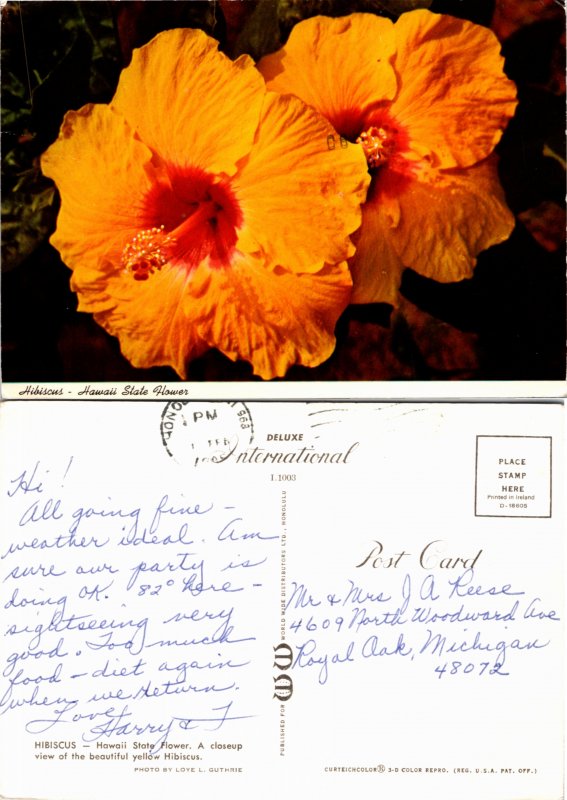 Hibiscus - Hawaii State Flower
PM
FEB
968
DELUXE
International
L1003
PLACE
STAMP
HERE
Printed in Ireland
D-18605
Post Card
Hi!
All going fine -
weather ideal. Am
sure our party is
doing OK. 82° here -
sightseeing very
good. Too much
food - diet again
when we return.
Love,
Harry &
Mr & Mrs J A Reese
4609 North Woodward Ave
Royal Oak, Michigan
48072
PUBLISHED FOR WORLD WIDE DISTRIBUTORS LTD., HONOLULU
HIBISCUS — Hawaii State Flower. A closeup
view of the beautiful yellow Hibiscus.
PHOTO BY LOYE L. GUTHRIE
CURTEICHCOLOR® 3-D COLOR REPRO. (REG. U.S.A. PAT. OFF.)